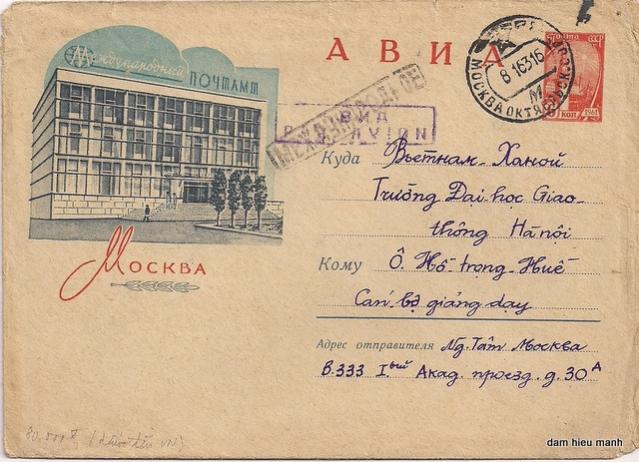 Международный
ПОЧТАМТ
АВИА
ПОЧТА СССР
1961
КОП
8 1 63 16
М
МОСКВА ОКТЯБРЬСК
МЕЖДУНАРОДНОЕ
АВИА
PAR AVION
Куда Вьетнам - Ханой
Trường Đại học Giao-
thông Hà nội
Кому Ô. Hồ trọng Huế
Cán bộ giảng dạy
Москва
Адрес отправителя Ng. Tâm Москва
В.333 Iый Акад. проезд. д. 30А
80.000đ
dam hieu manh